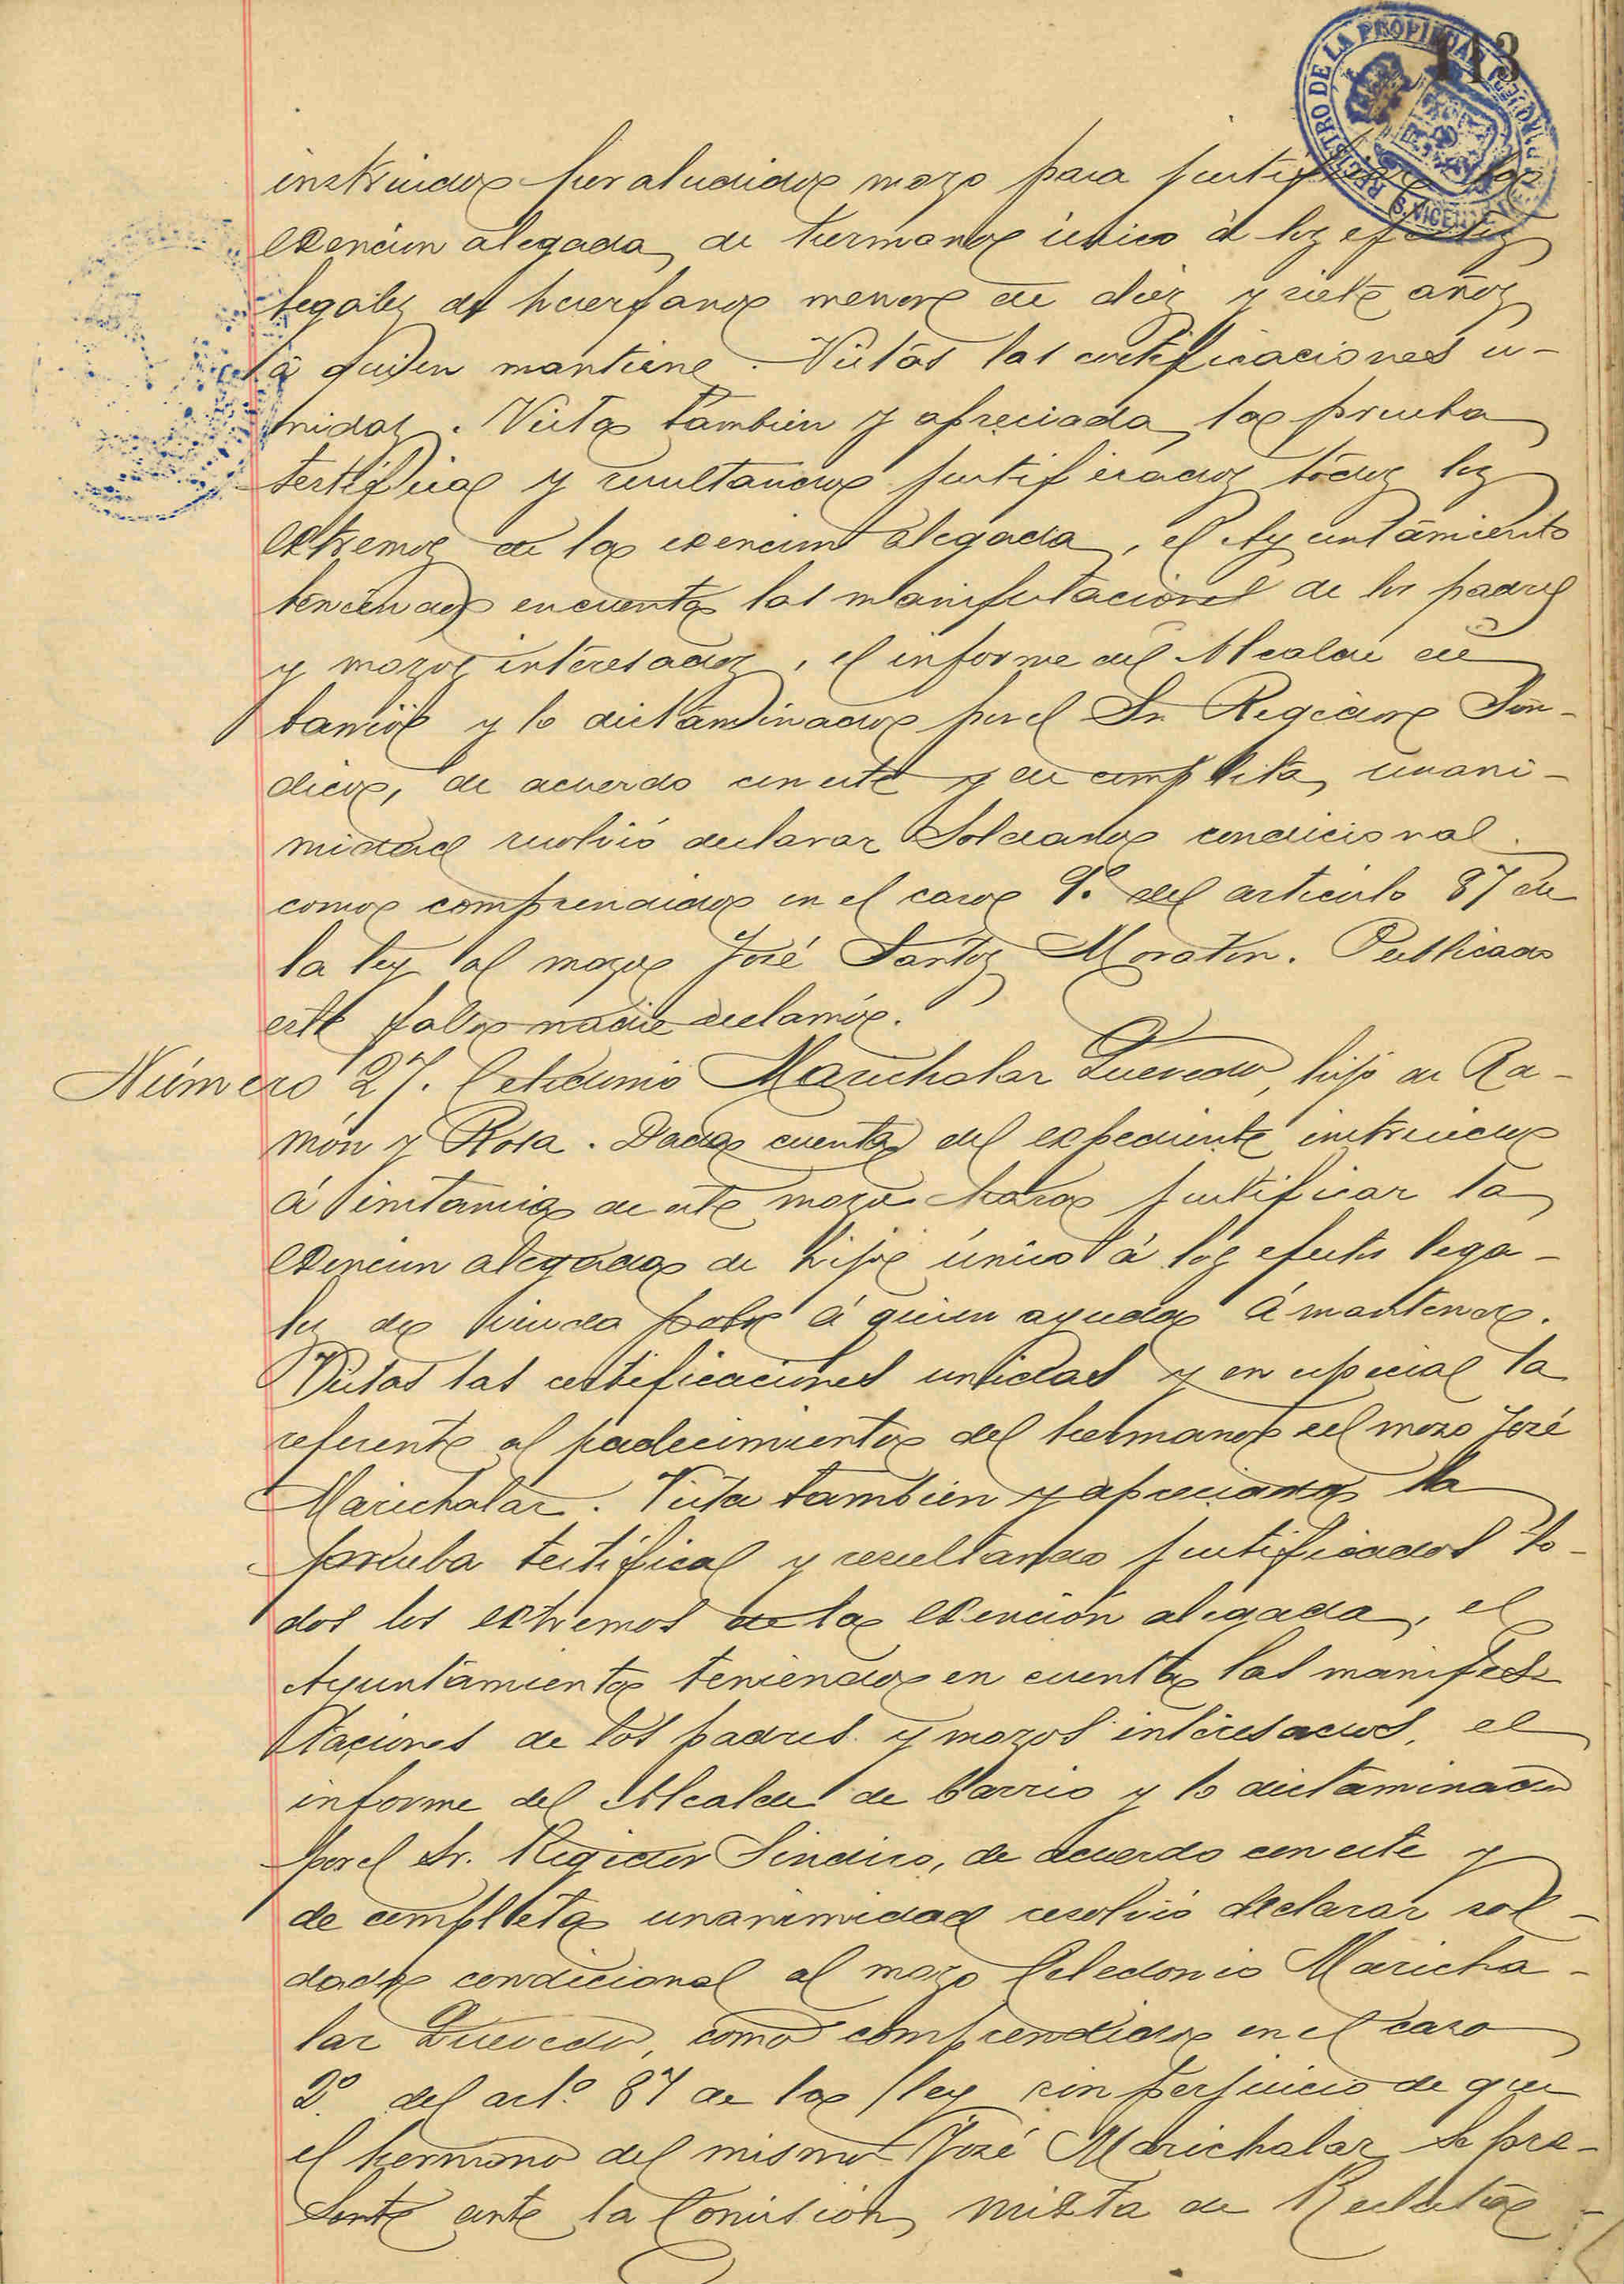 113
REGISTRO DE LA PROPIEDAD
S. VICENTE
instruido por aludido mozo para justificar la
exencion alegada de hermano único á los efectos
legales de huerfano menor de diez y siete años
á quien mantiene. Vistas las certificaciones u-
nidas. Vista tambien y apreciada la prueba
testifical y resultando justificados todos los
extremos de la exencion alegada, el Ayuntamiento
teniendo en cuenta las manifestaciones de los padres
y mozos interesados, el informe del Alcalde de
barrio y lo dictaminado por el Sr. Regidor Sín-
dico, de acuerdo con este y de completa unani-
midad resolvió declarar Soldado condicional
como comprendido en el caso 9º del articulo 87 de
la ley al mozo José Santos Moraton. Publicado
este fallo nadie reclamó.
Número 27. Celedonio Marichalar Quevedo, hijo de Ra-
món y Rosa. Dada cuenta del expediente instruido
á instancia de este mozo para justificar la
exencion alegada de hijo único á los efectos lega-
les de viuda pobre á quien ayuda á mantener.
Vistas las certificaciones unidas y en especial la
referente al padecimiento del hermano del mozo José
Marichalar. Vista tambien y apreciada la
prueba testifical y resultando justificados to-
dos los extremos de la exención alegada, el
Ayuntamiento teniendo en cuenta las manifes-
taciones de los padres y mozos interesados, el
informe del Alcalde de barrio y lo dictaminado
por el Sr. Regidor Sindico, de acuerdo con este y
de completa unanimidad resolvió declarar sol-
dado condicional al mozo Celedonio Maricha-
lar Quevedo, como comprendido en el caso
2º del artº 87 de la ley sin perjuicio de que
el hermano del mismo José Marichalar se pre-
sente ante la Comision mixta de Recluta-